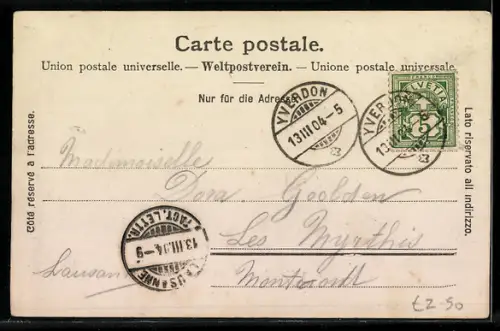 Carte postale.
Union postale universelle. — Weltpostverein. — Unione postale universale.
Nur für die Adresse.
Côté réservé à l'adresse.
Lato riservato all indirizzo.
YVERDON
13 III 04 - 5
YVERDON
13 III 04
HELVETIA
FRANCO
5
Mademoiselle
Dora Goolden
Les Myrthis
Lausanne
LAUSANNE
13.III.04 - 9
FACT. LETTR.
£2-50